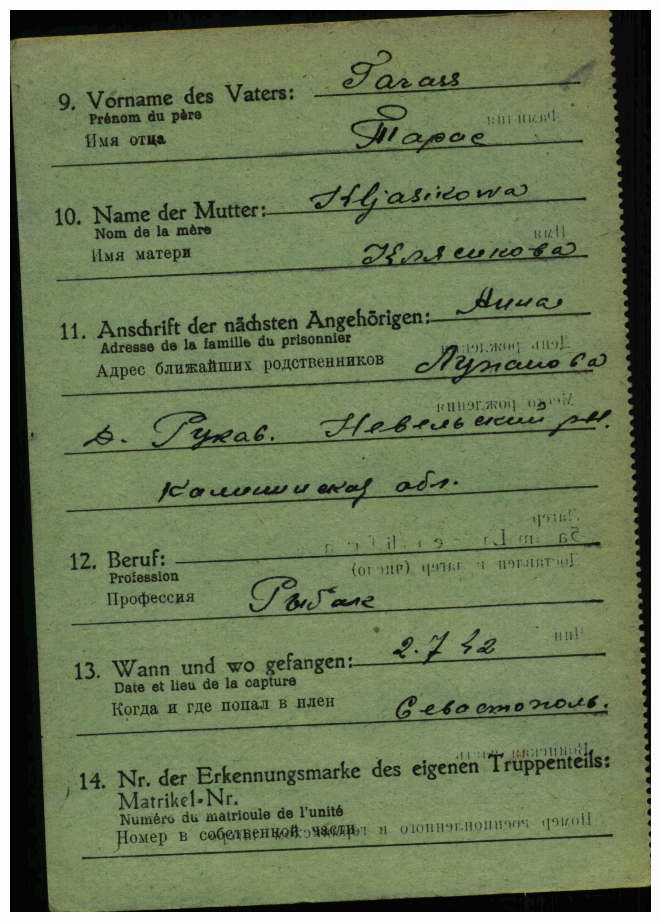 9. Vorname des Vaters: Tarass
Prénom du père
Имя отца Тарас
10. Name der Mutter: Kljasikowa
Nom de la mère
Имя матери Клясикова
11. Anschrift der nächsten Angehörigen: Анна
Adresse de la famille du prisonnier
Адрес ближайших родственников
д. Рукав. Невельский рн.
Калининская обл.
12. Beruf:
Profession
Профессия Рыбак
13. Wann und wo gefangen: 2.7 42
Date et lieu de la capture
Когда и где попал в плен Севастополь.
14. Nr. der Erkennungsmarke des eigenen Truppenteils:
Matrikel-Nr.
Numéro du matricule de l'unité
Номер в собственной части